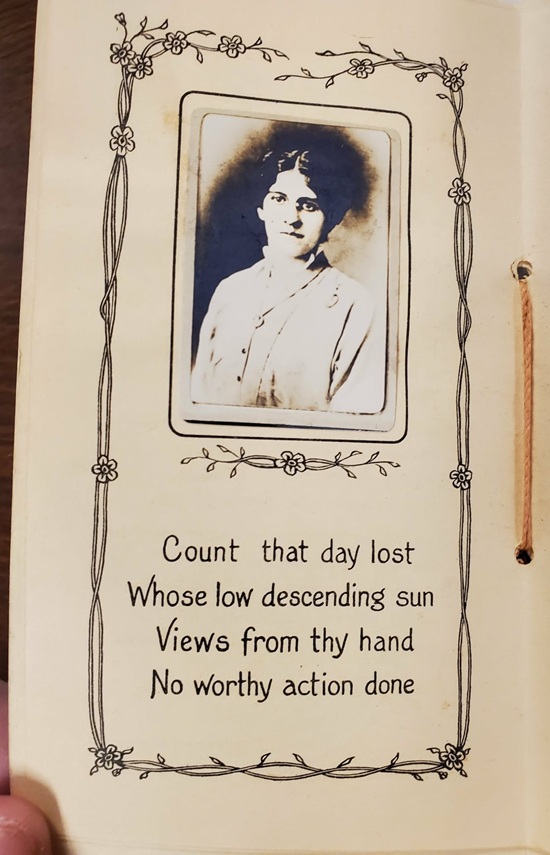 Count that day lost
Whose low descending sun
Views from thy hand
No worthy action done